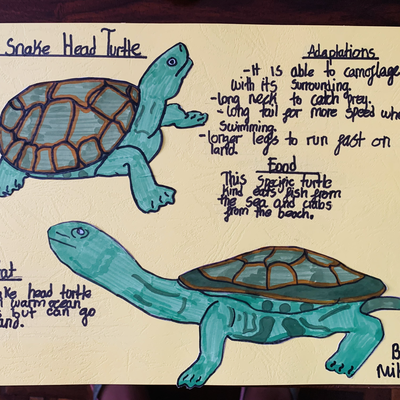 Snake Head Turtle
Adaptations
-It is able to camoflage
with its surrounding.
-long neck to catch prey.
-long tail for more speed whe
swimming.
-longer legs to run fast on
land.
Food
This specific turtle
kind eats fish from
the sea and crabs
from the beach.
tat
ke head turtle
warm ocean
s but can go
and.
B
Mik